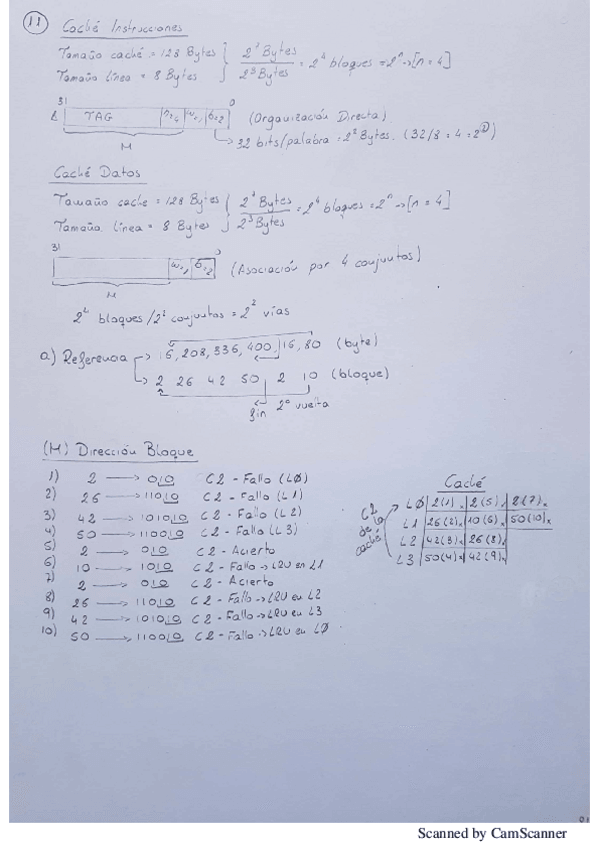 11 Caché Instrucciones
Tamaño caché = 128 Bytes } 2^7 Bytes / 2^3 Bytes = 2^4 bloques = 2^n → [n = 4]
Tamaño línea = 8 Bytes
31 0
TAG n=4 w=1 b=2 (Organización Directa)
M → 32 bits/palabra = 2^2 Bytes. (32/8 = 4 = 2^2)
Caché Datos
Tamaño caché = 128 Bytes } 2^7 Bytes / 2^3 Bytes = 2^4 bloques = 2^n → [n = 4]
Tamaño línea = 8 Bytes
31 0
w=1 b=2 (Asociación por 4 conjuntos)
M
2^4 bloques / 2^2 conjuntos = 2^2 vías
a) Referencia → 16, 208, 336, 400, 16, 80 (byte)
→ 2 26 42 50 2 10 (bloque)
fin 2ª vuelta
(M) Dirección Bloque
1) 2 → 010 C2 - Fallo (LØ)
2) 26 → 11010 C2 - Fallo (L1)
3) 42 → 101010 C2 - Fallo (L2)
4) 50 → 110010 C2 - Fallo (L3)
5) 2 → 010 C2 - Acierto
6) 10 → 1010 C2 - Fallo → LRU en L1
7) 2 → 010 C2 - Acierto
8) 26 → 11010 C2 - Fallo → LRU en L2
9) 42 → 101010 C2 - Fallo → LRU en L3
10) 50 → 110010 C2 - Fallo → LRU en LØ
Caché
C2 de la caché
LØ 2(1)x 2(5)x 2(7)x
L1 26(2)x 10(6)x 50(10)x
L2 42(3)x 26(8)x
L3 50(4)x 42(9)x
Scanned by CamScanner